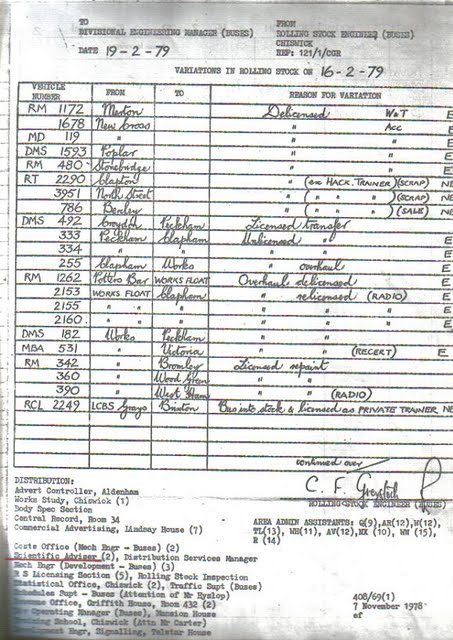 TO FROM
DIVISIONAL ENGINEERING MANAGER (BUSES) ROLLING STOCK ENGINEER (BUSES)
CHISWICK
DATE 19-2-79 REF: 121/1/CGR
VARIATIONS IN ROLLING STOCK ON 16-2-79
VEHICLE NUMBER FROM TO REASON FOR VARIATION
RM 1172 Merton Delicensed W&T E
1678 New Cross " Acc E
MD 119 " " " E
DMS 1593 Poplar " " E
RM 480 Stonebridge " " E
RT 2290 Clapton " (ex HACK. TRAINER) (SCRAP) NE
3951 North Street " ( " " ) (SCRAP) NE
786 Bexley " ( " " ) (SALE) NE
DMS 492 Croydon Peckham Licensed transfer
333 Peckham Clapham Unlicensed " E
334 " " " " E
255 Clapham Works " overhaul E
RM 1262 Potters Bar WORKS FLOAT Overhaul delicensed E
2153 WORKS FLOAT Clapham " relicensed (RADIO) E
2155 " " " " " E
2160 " " " " " E
DMS 182 Works Peckham " " E
MBA 531 " Victoria " " (RECERT) E
RM 342 " Bromley Licensed repaint
360 " Wood Green " "
390 " West Ham " " (RADIO)
RCL 2249 LCBS Grays Brixton Bus into stock & licensed as PRIVATE TRAINER NE
continued over
C. F. Greystock
ROLLING STOCK ENGINEER (BUSES)
DISTRIBUTION:
Advert Controller, Aldenham
Works Study, Chiswick (1)
Body Spec Section
Central Record, Room 34
Commercial Advertising, Lindsay House (7)
AREA ADMIN ASSISTANTS: Q(9),AR(12),W(12),
TL(13), WH(11), AV(12),NX (10), WN (15),
E (14)
Costs Office (Mech Engr - Buses) (2)
Scientific Adviser (2), Distribution Services Manager
Mech Engr (Development - Buses) (3)
R S Licensing Section (5), Rolling Stock Inspection
Statistical Office, Chiswick (2), Traffic Supt (Buses)
Schedules Supt - Buses (Attention of Mr Hyslop)
Revenue Office, Griffith House, Room 432 (2)
Operating Manager (Buses), Mansion House
Training School, Chiswick (Attn Mr Carter)
Development Engr, Signalling, Telstar House
408/69(1)
7 November 1978
ef